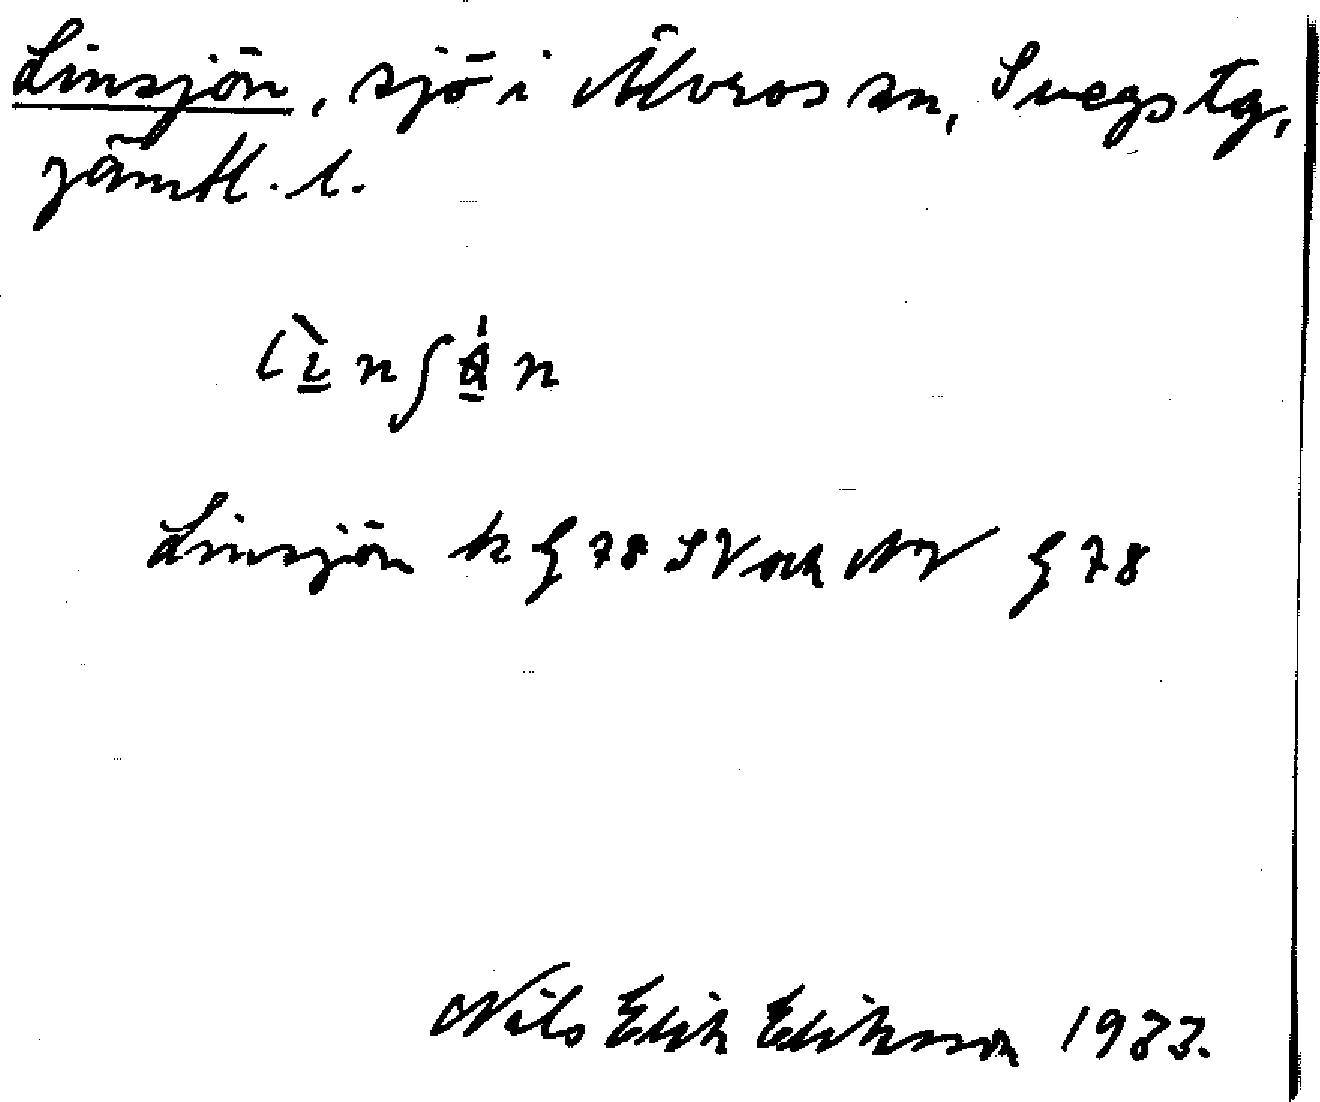 Linsjön, sjö i Älvros sn, Svegs tg,
Jämtl. l.
Linsjön k G 78 SV och NV G 78
Nils Erik Eriksson 1933.